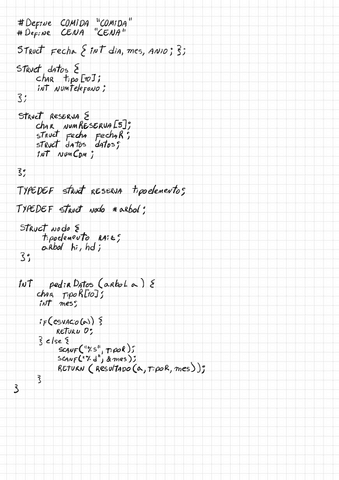 #Define COMIDA "COMIDA"
#Define CENA "CENA"
Struct Fecha { int dia, mes, ANIO; };
Struct datos {
char tipo[10];
int numTelefono;
};
Struct RESERVA {
char numRESERVA[5];
struct fecha fechaR;
struct datos datos;
int numCom;
};
TYPEDEF struct RESERVA tipoelemento;
TYPEDEF struct nodo *arbol;
Struct nodo {
tipoelemento RAIZ;
arbol hi, hd;
};
INT pedirDatos (arbol a) {
char tipoR[10];
int mes;
if(esvacio(a)) {
RETURN 0;
} else {
SCANF("%s", tipoR);
SCANF("%d", &mes);
RETURN (RESULTADO(a, tipoR, mes));
}
}